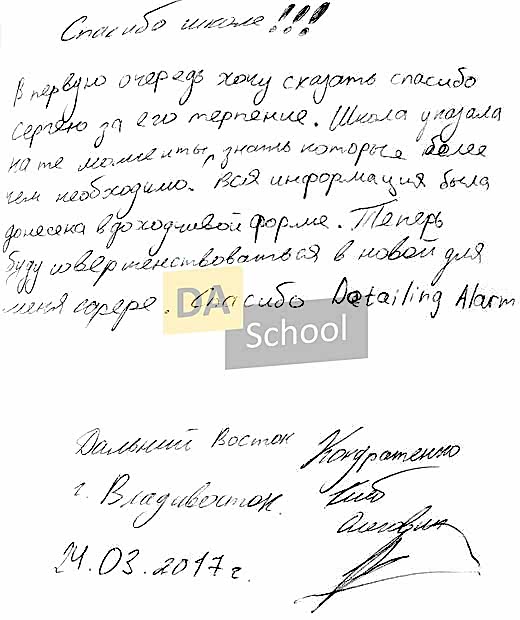 Спасибо школе!!!
В первую очередь хочу сказать спасибо
Сергею за его терпение. Школа указала
на те моменты, знать которые более
чем необходимо. Вся информация была
донесена в доходчивой форме. Теперь
буду совершенствоваться в новой для
меня сфере. Спасибо Detailing Alarm
DA
School
Дальний Восток
г. Владивосток.
24.03.2017г.
Кондратенко
Олегович